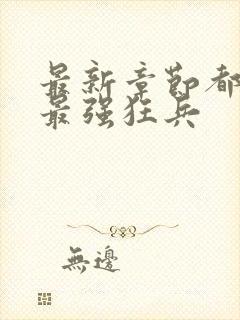 最新章節都
最强狂兵
無邊